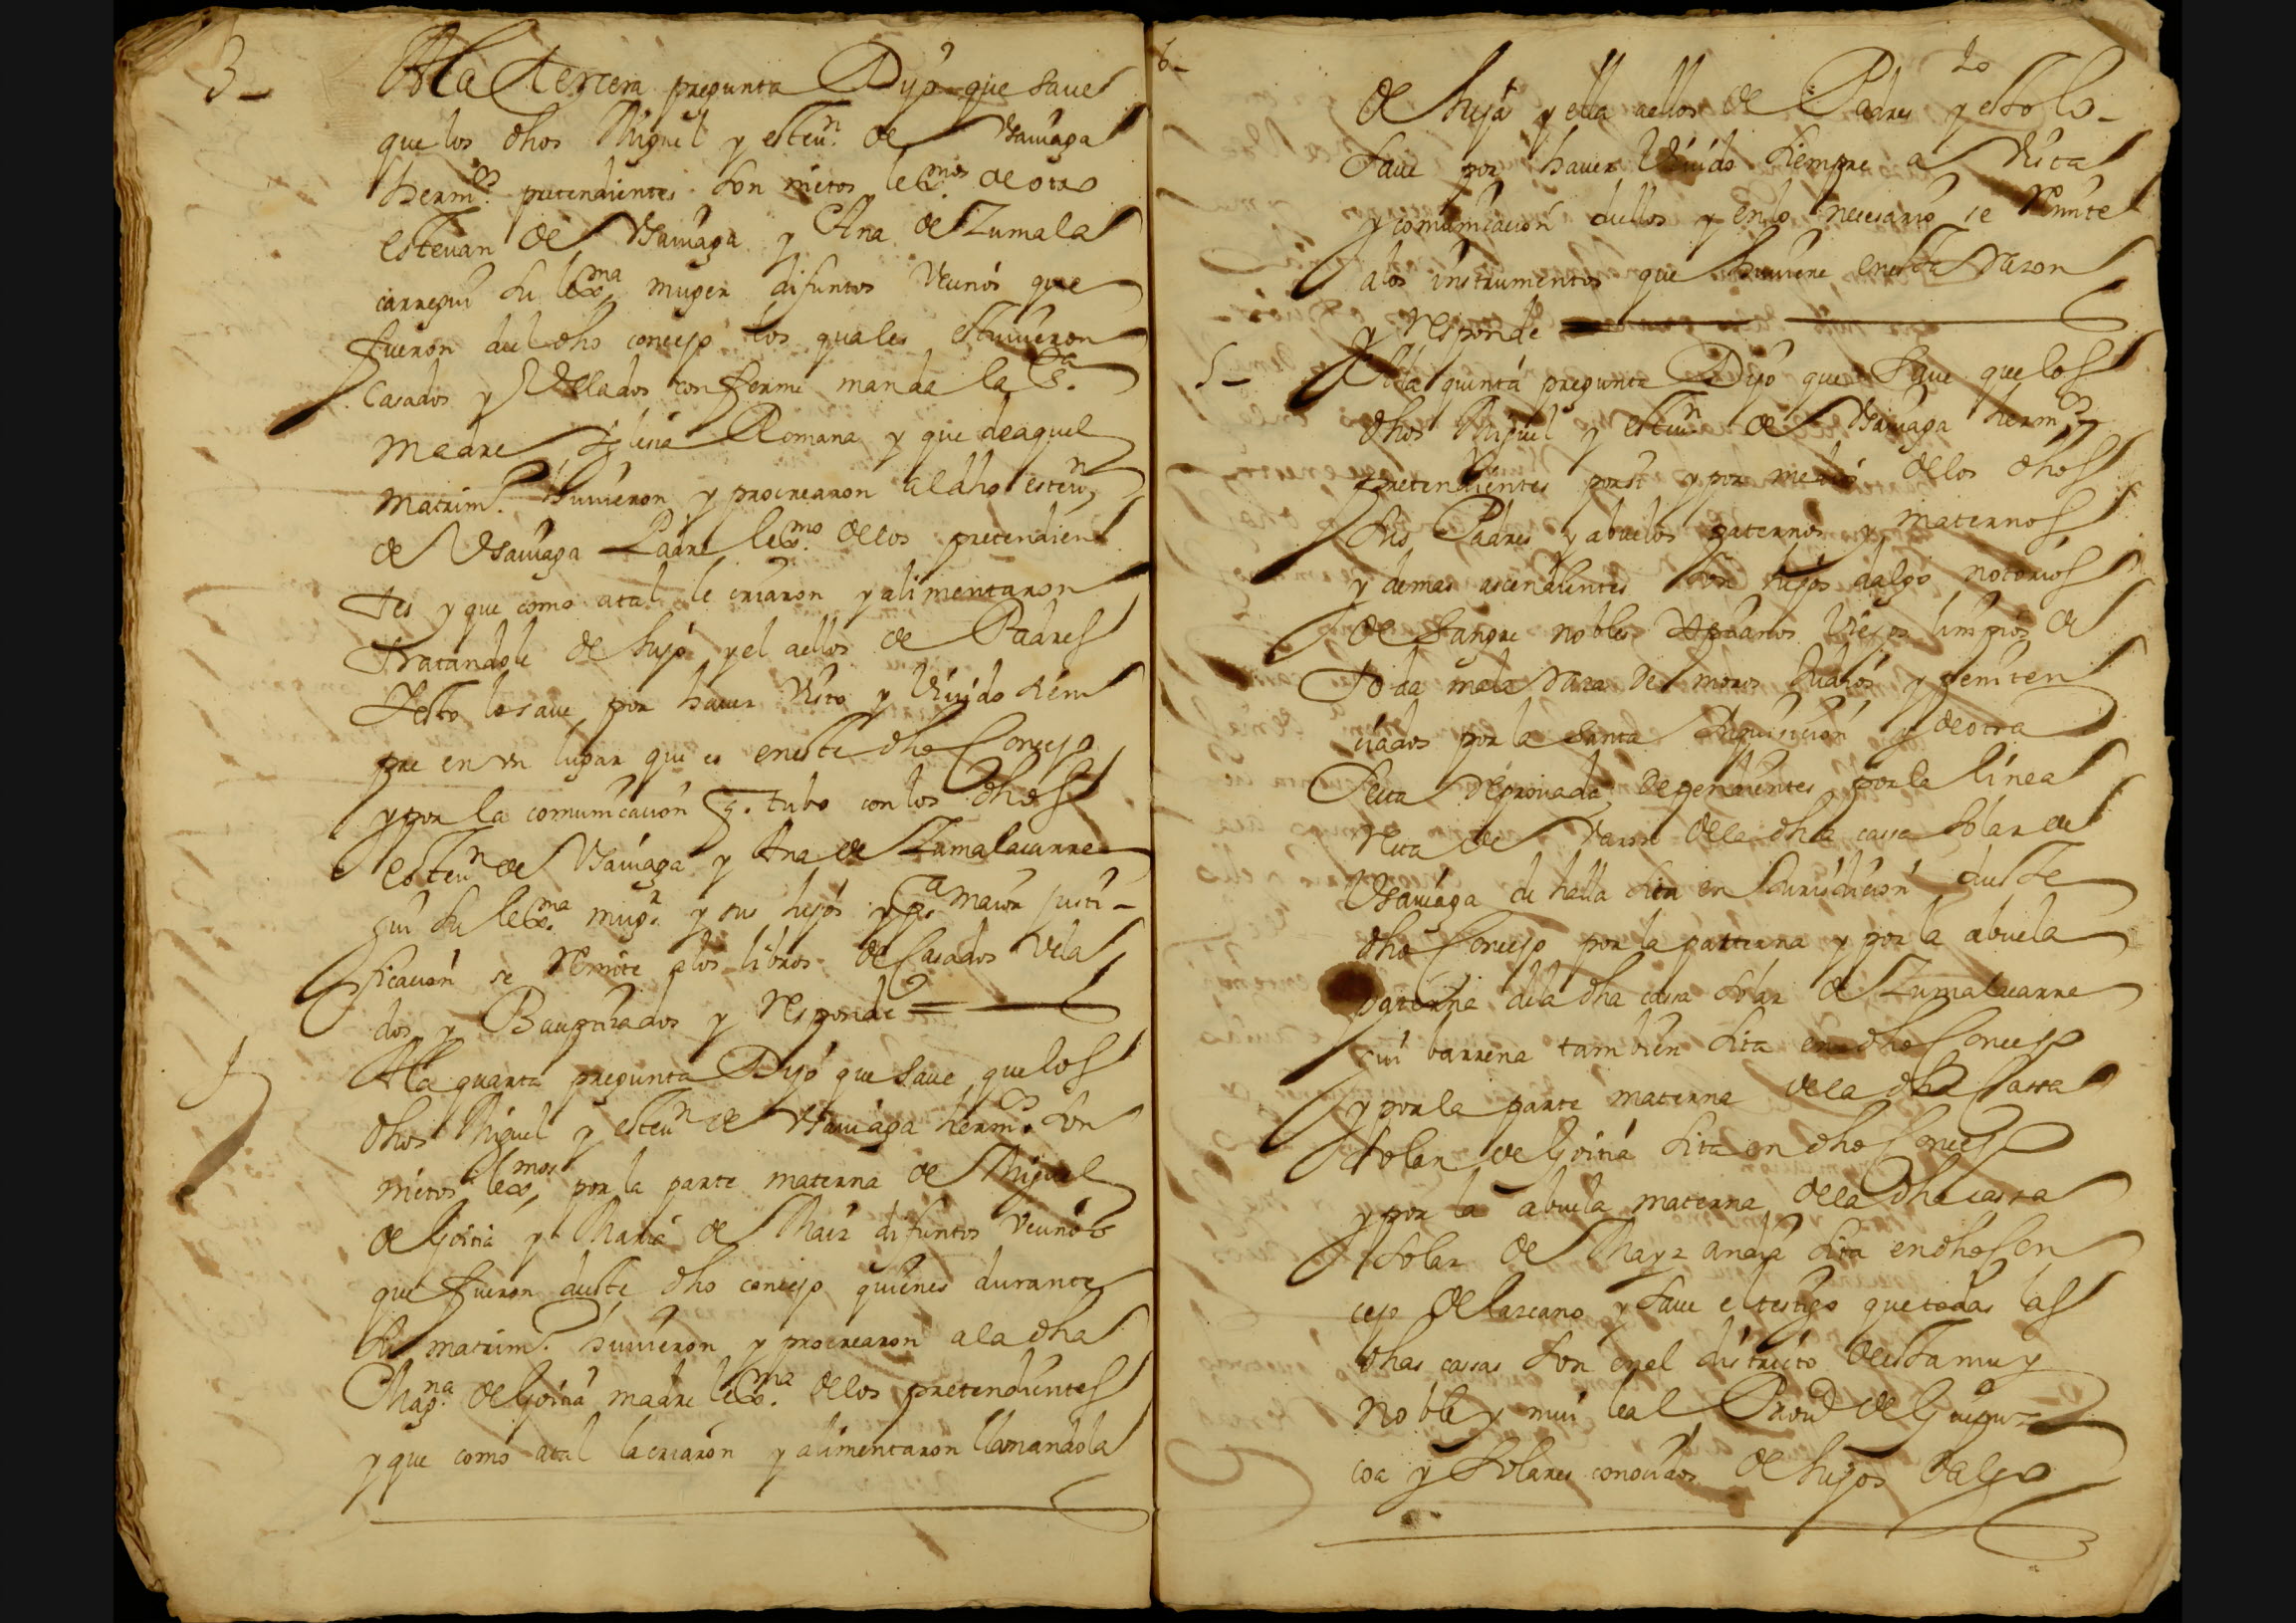 3_
A la tercera pregunta Dijo que saue
que los dhos Miguel y esteun de Vsauiaga
hermos pretendientes son nietos lexmos de otro
esteuan de Vsauiaga y Ana de Zumala
carregui su lexma muger difuntos Vecinos que
fueron del dho concejo los quales estuuieron
Casados y Vellados conforme manda la sta
Madre Iglesia Romana y que de aquel
matrimo huuieron y procrearon al dho esteun
de Vsauiaga Padre lexmo de los pretendien
tes y que como atal le criaron y alimentaron
tratandole de hijo y el aellos de Padres
Y esto lo saue por hauer Visto y Viuido siem
pre en Vn lugar que es eneste dho Concejo
y por la comunicacion q. tubo con los dhos
esteun de Vsauiaga y Ana de Zumalacarre
gui su lexma mugr y sus hijos y pa maior justi-
ficacion se rremite alos libros de Casados Vela
dos y Baupticados y rresponde
4
A la quarta pregunta Dijo que saue que los
dhos Miguel y esteun de Vsauiaga hermos son
nietos lexmos por la parte materna de Miguel
de Goitia y Maria de Maiz difuntos Vecinos
que fueron deeste dho concejo quienes durante
su matrimo huuieron y procrearon ala dha
Magna de Goitia madre lexma de los pretendientes
y que como atal la criaron y alimentaron llamandola
20
de hija y ella aellos de Padres y esto lo
saue por hauer Viuido siempre a Vista
y comunicacion dellos y en lo necesario se rremite
alos instrumentos que huuiere enesta rrazon
y rresponde
5_
A la quinta pregunta Dijo que saue que los
dhos Miguel y esteun de Vsauiaga hermos
pretendientes por si y por medio de los dhos
sus Padres y abuelos paternos y maternos
y demas ascendientes son hijos dalgo notorios
de sangre nobles Xptianos Viejos limpios de
toda mala rraza de moros Judios y peniten
ciados por la santa Inquisicion y de otra
secta rreprouada Dependientes por la linea
recta de Varon de la dha cassa solar de
Vsauiaga de halla sita en Jurisdicion deeste
dho Concejo por la paterna y por la abuela
paterna dela dha cassa solar de Zumalacarre
gui barrena tambien sita en dho Concejo
y por la parte materna de la dha Cassa
solar de Goitia sita en dho Concejo
y por la abuela materna de la dha cassa
solar de Mayz anaia sita en dho Con
cejo de lazcano y saue el testigo que todas las
dhas cassas son en el districto de esta muy
Noble y mui leal Prouа de Guipuz
coa y solares conocidos de hijos dalgo